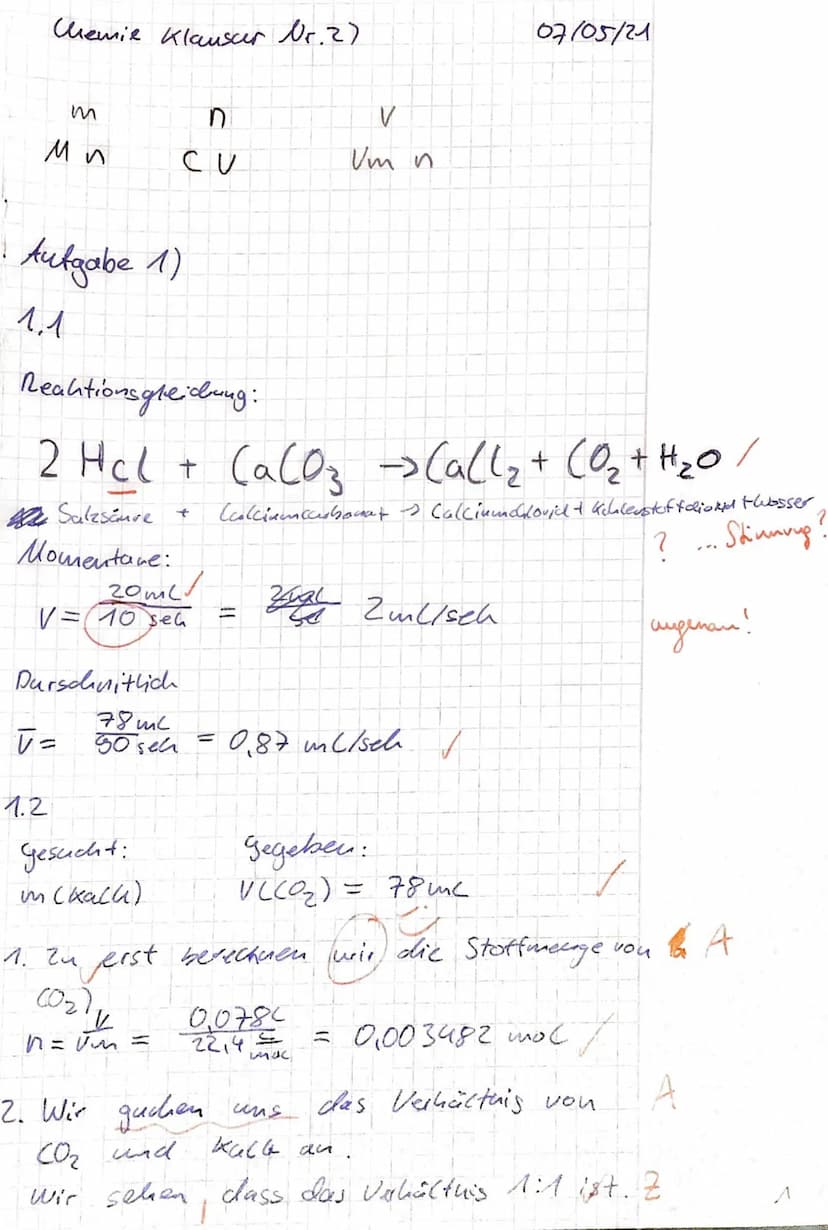 Chemie Klausur Nr.2) 07/05/21
m n V
M n C V Vm n
Aufgabe 1)
1.1
Reaktionsgleichung:
2 HCl + CaCO3 → CaCl2 + CO2 + H2O
Salzsäure + Calciumcarbonat → Calciumchlorid + Kohlenstoffdioxid + Wasser
? ... Stimmung?
Momentane:
V = 20mL / 10 sek = 2mL/sek
ungenau!
Durschnitlich
V̄ = 78mL / 90 sek = 0,87 mL/sek
1.2
Gesucht: Gegeben:
m (Kalk) V(CO2) = 78mL
1. Zu erst berechnen wir die Stoffmenge von A
CO2)
n = V / Vm = 0,078L / 22,4 L/mol = 0,003482 mol
2. Wir gucken uns das Verhältnis von A
CO2 und Kalk an.
Wir sehen, dass das Verhältnis 1:1 ist. Z
1